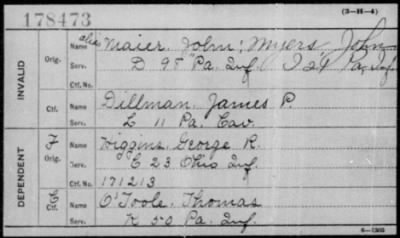 178473 (3-H-4)
INVALID
Orig. Name alias Maier, John; Myers, John
Serv. D 98" Pa. Inf. I 24 Pa. Inf.
Ctf. No.
Ctf. Name Dillman, James P.
Serv. L 11 Pa. Cav.
DEPENDENT
F Orig. Name Wiggins, George R.
Serv. C 23 Ohio Inf.
Ctf. No. 171213
C Ctf. Name O'Toole, Thomas
Serv. K 50 Pa. Inf.
6-1303